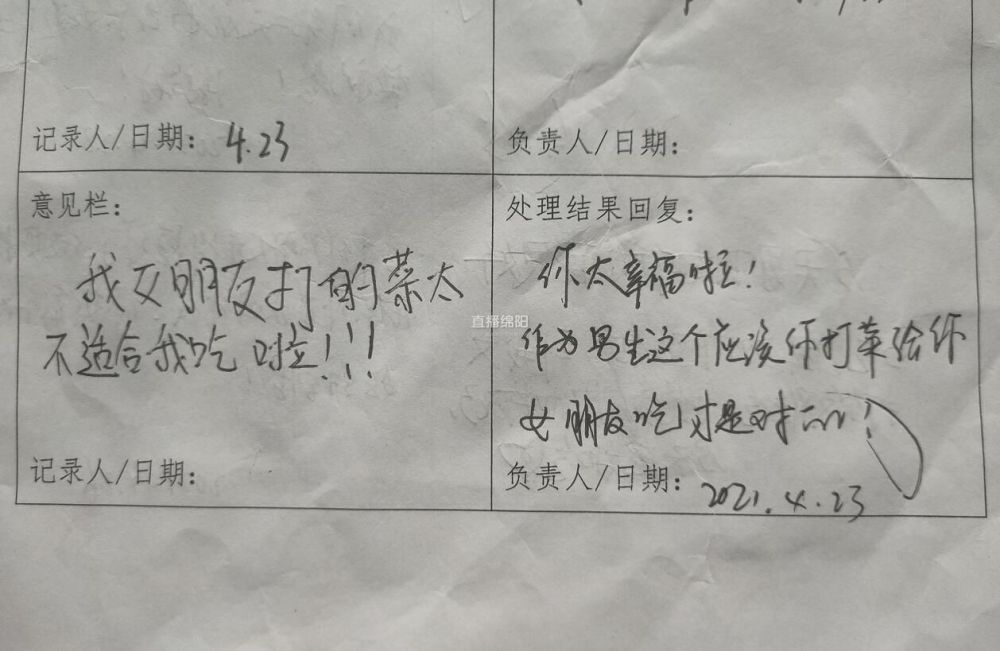 记录人/日期: 4.23
负责人/日期:
意见栏:
我女朋友打的菜太
不适合我吃啦!!!
记录人/日期:
处理结果回复:
你太幸福啦!
作为男生这个应该你打菜给你
女朋友吃才是对的!
负责人/日期: 2021.4.23
直播绵阳